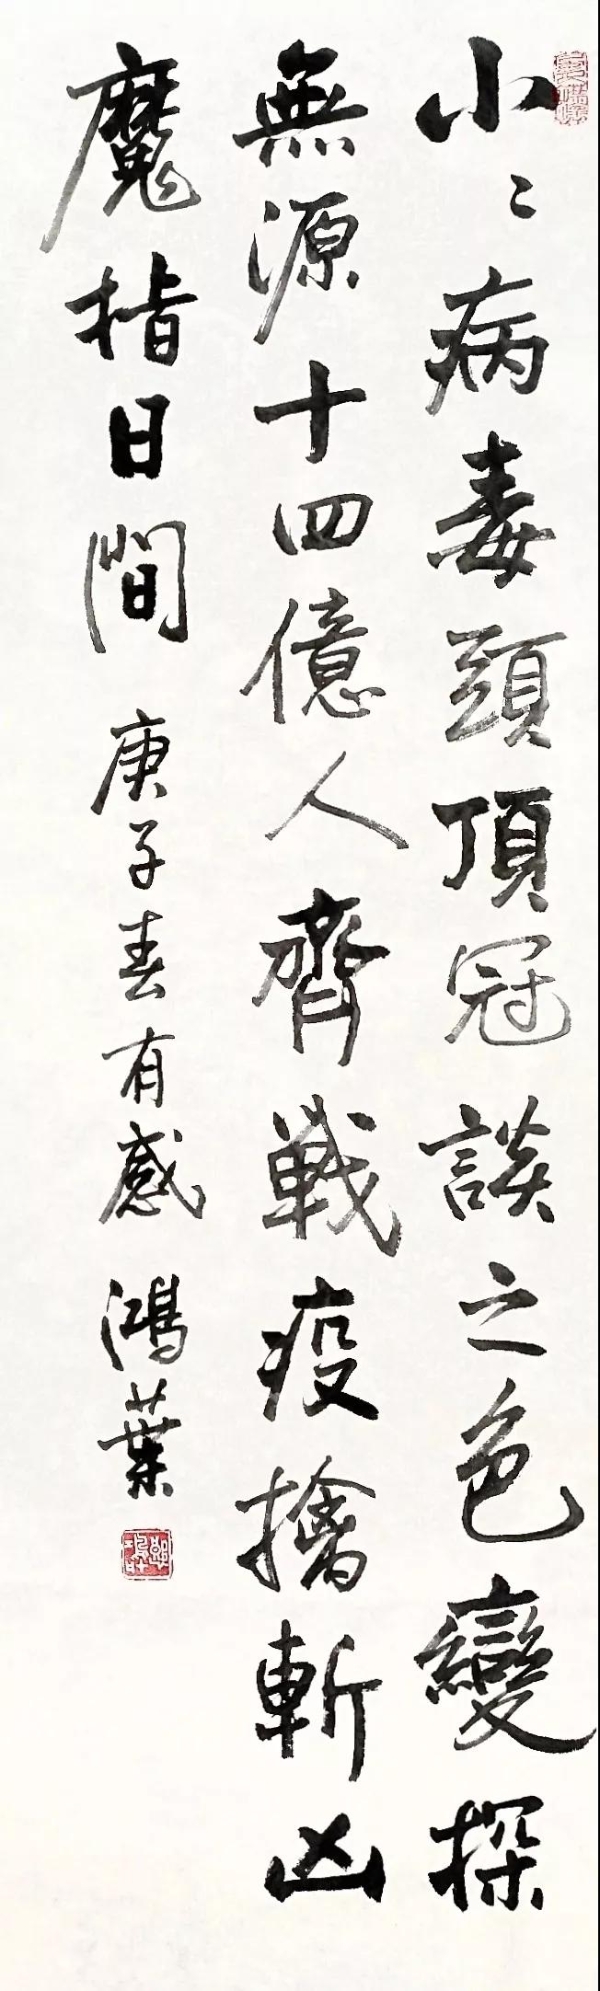 小〻病毒頭頂冠談之色變探
無源十四億人齊戰疫擒斬凶
魔指日間 庚子春有感 鴻葉